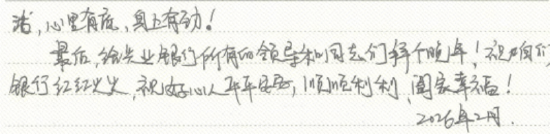 活,心里有底,身上有劲!
最后,给兴业银行所有的领导和同志们拜个晚年!祝咱们
银行红红火火,祝好心人平平安安,顺顺利利,阖家幸福!
2026年2月.